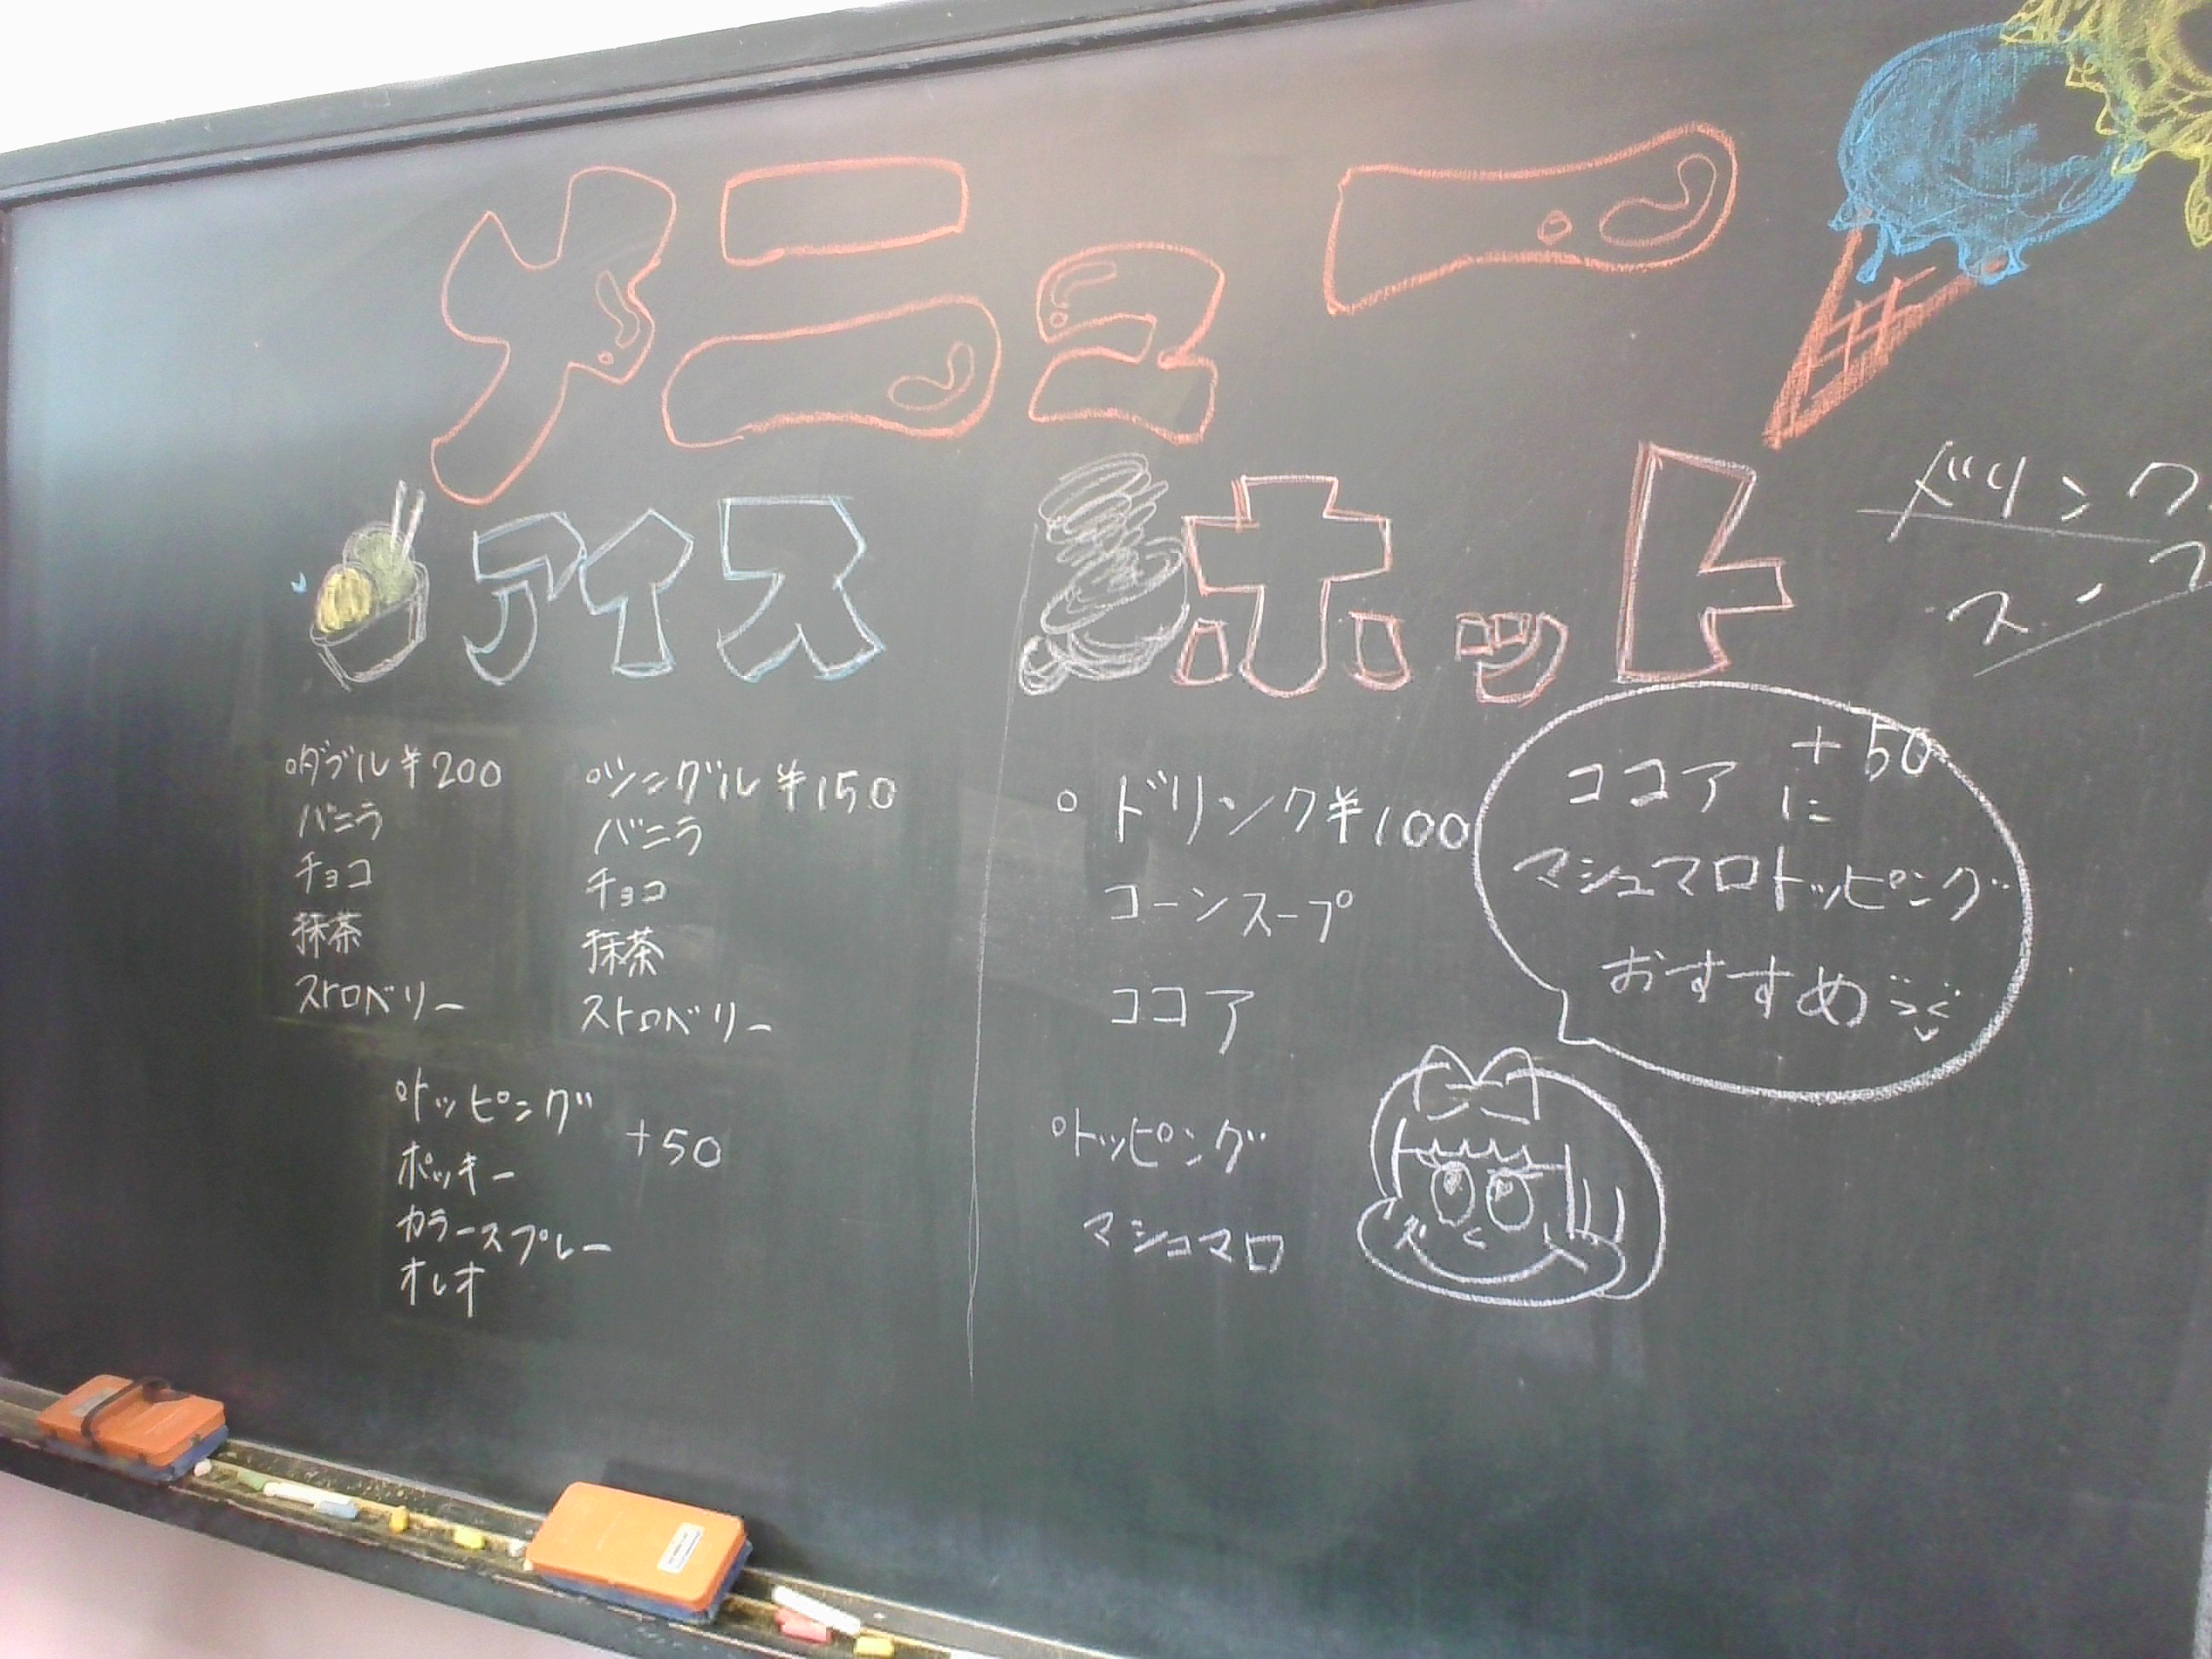 メニュー
アイス
ダブル ¥200
バニラ
チョコ
抹茶
ストロベリー
シングル ¥150
バニラ
チョコ
抹茶
ストロベリー
トッピング
+50
ポッキー
カラースプレー
オレオ
ホット
ドリンク ¥100
コーンスープ
ココア
トッピング
マシュマロ
+50
ココアに
マシュマロトッピング
おすすめ
ドリンク